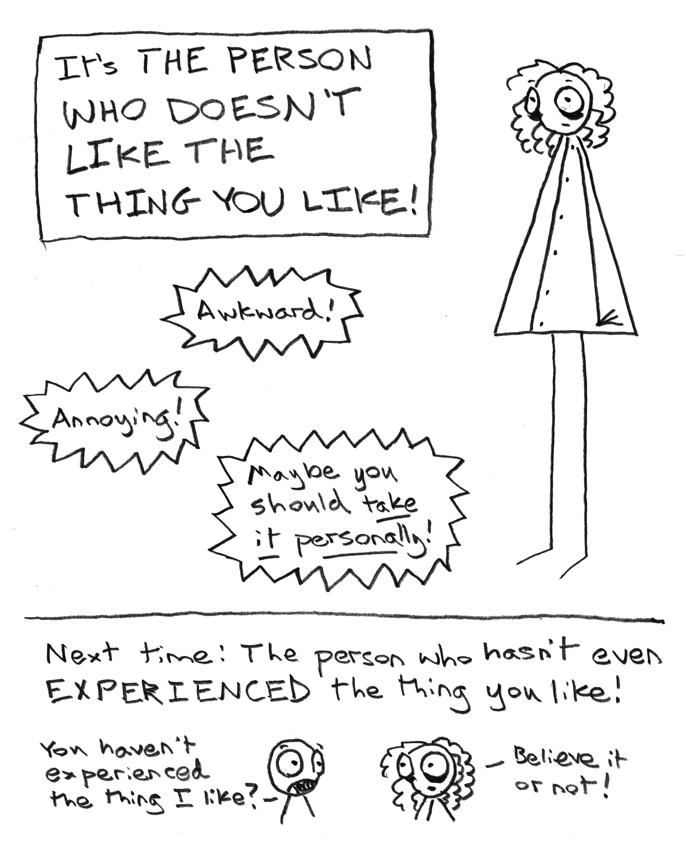 It's THE PERSON
WHO DOESN'T
LIKE THE
THING YOU LIKE!
Awkward!
Annoying!
Maybe you
should take
it personally!
Next time: The person who hasn't even
EXPERIENCED the thing you like!
You haven't
experienced
the thing I like?
Believe it
or not!